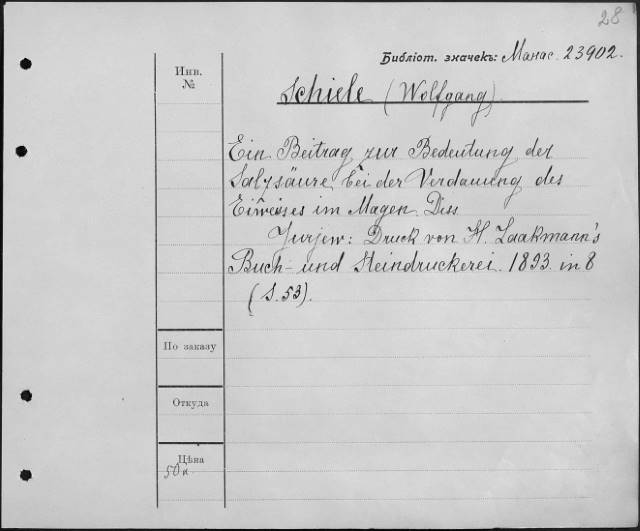 28
Библіот. значекъ: Манас. 23902.
Инв.
№
Schiele (Wolfgang)
Ein Beitrag zur Bedeutung der
Salzsäure bei der Verdauung des
Eiweises im Magen. Diss
Jurjew: Druck von H. Laakmann's
Buch- und Steindruckerei. 1893. in 8
(S. 53).
По заказу
Откуда
Цѣна
50 к